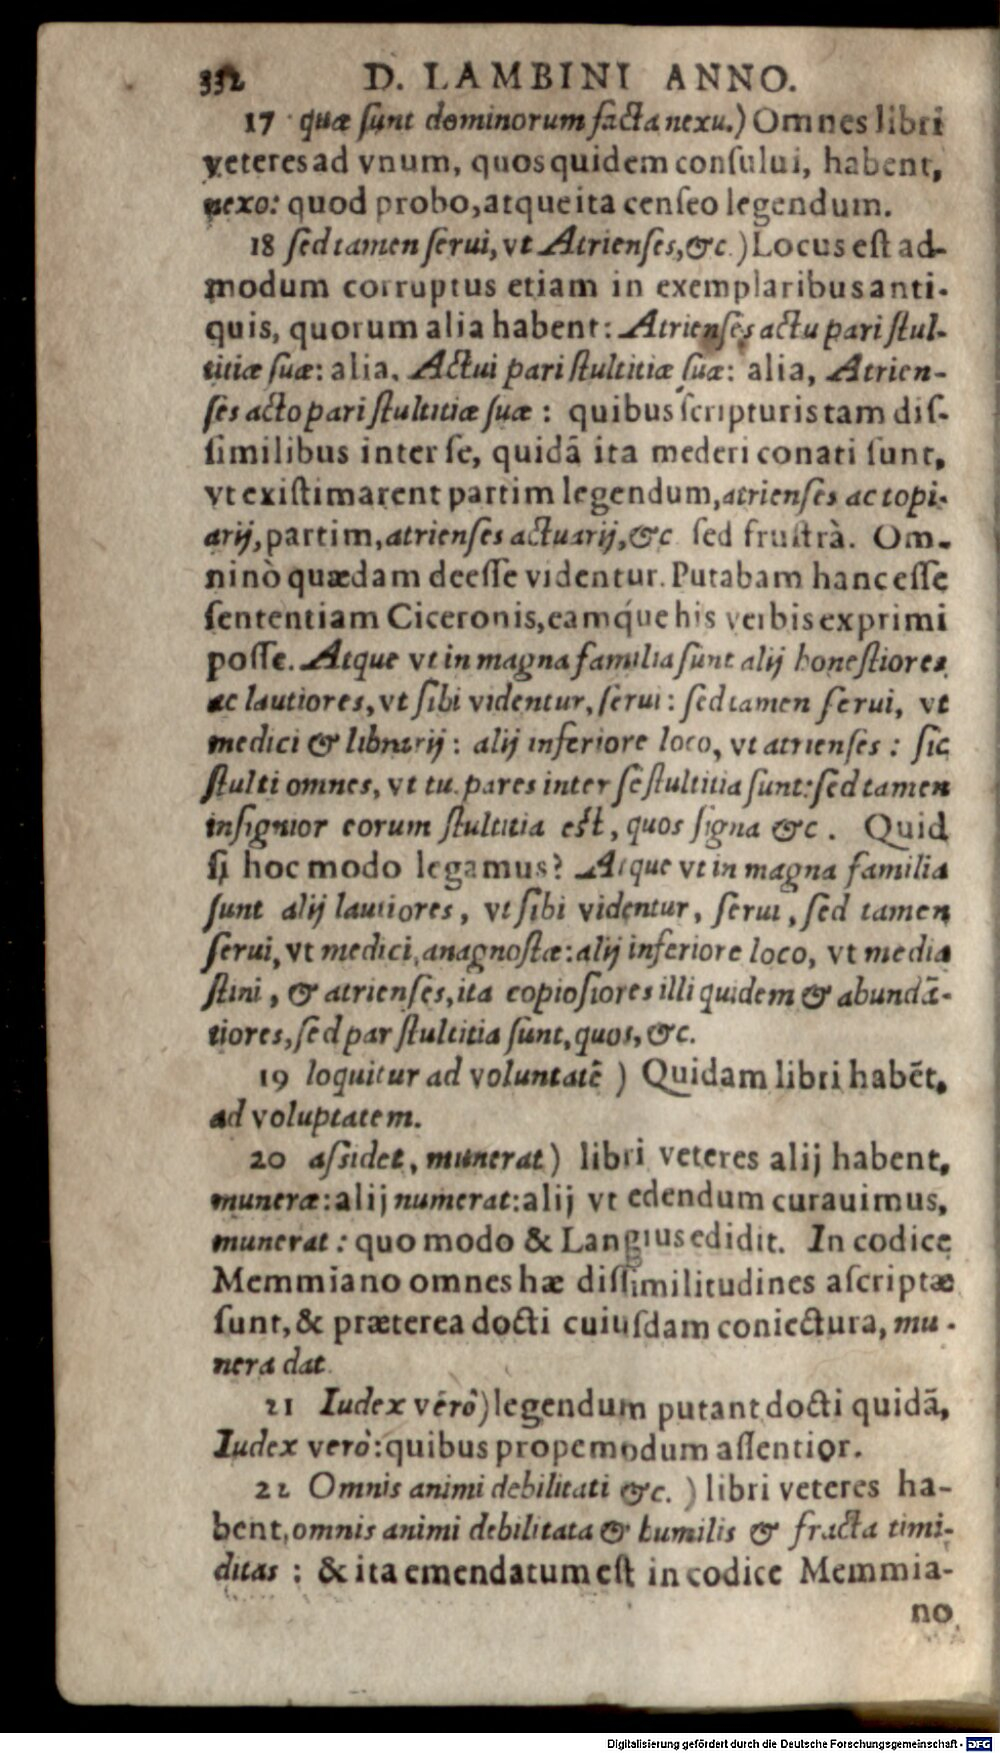 332 D. LAMBINI ANNO.
17 quæ ſunt dominorum facta nexu.) Omnes libri
veteres ad vnum, quos quidem conſului, habent,
nexo: quod probo, atque ita cenſeo legendum.
18 ſed tamen ſerui, vt Atrienſes, &c.) Locus eſt ad-
modum corruptus etiam in exemplaribus anti-
quis, quorum alia habent: Atrienſes actu pari ſtul-
titiæ ſuæ: alia, Actui pari ſtultitiæ ſuæ: alia, Atrien-
ſes acto pari ſtultitiæ ſuæ: quibus ſcripturis tam diſ-
ſimilibus inter ſe, quidã ita mederi conati ſunt,
vt exiſtimarent partim legendum, atrienſes ac topi-
arij, partim, atrienſes actuarij, &c. ſed fruſtrà. Om-
ninò quædam deeſſe videntur. Putabam hanc eſſe
ſententiam Ciceronis, eamq́ue his verbis exprimi
poſſe. Atque vt in magna familia ſunt alij honeſtiores
ac lautiores, vt ſibi videntur, ſerui: ſed tamen ſerui, vt
medici & librarij: alij inferiore loco, vt atrienſes: ſic
ſtulti omnes, vt tu. pares inter ſe ſtultitia ſunt: ſed tamen
inſignior eorum ſtultitia eſt, quos ſigna &c. Quid
ſi hoc modo legamus? Atque vt in magna familia
ſunt alij lautiores, vt ſibi videntur, ſerui, ſed tamen
ſerui, vt medici, anagnoſtæ: alij inferiore loco, vt media
ſtini, & atrienſes, ita copioſiores illi quidem & abundã-
tiores, ſed par ſtultitia ſunt, quos, &c.
19 loquitur ad voluntatẽ) Quidam libri habẽt,
ad voluptatem.
20 aſſidet, munerat) libri veteres alij habent,
muneræ: alij numerat: alij vt edendum curauimus,
munerat: quo modo & Langius edidit. In codice
Memmiano omnes hæ diſſimilitudines aſcriptæ
ſunt, & præterea docti cuiuſdam coniectura, mu-
nera dat.
21 Iudex verò) legendum putant docti quidã,
Iudex verò: quibus propemodum aſſentior.
22 Omnis animi debilitati &c.) libri veteres ha-
bent, omnis animi debilitata & humilis & fracta timi-
ditas: & ita emendatum eſt in codice Memmia-
no
Digitalisierung gefördert durch die Deutsche Forschungsgemeinschaft - DFG